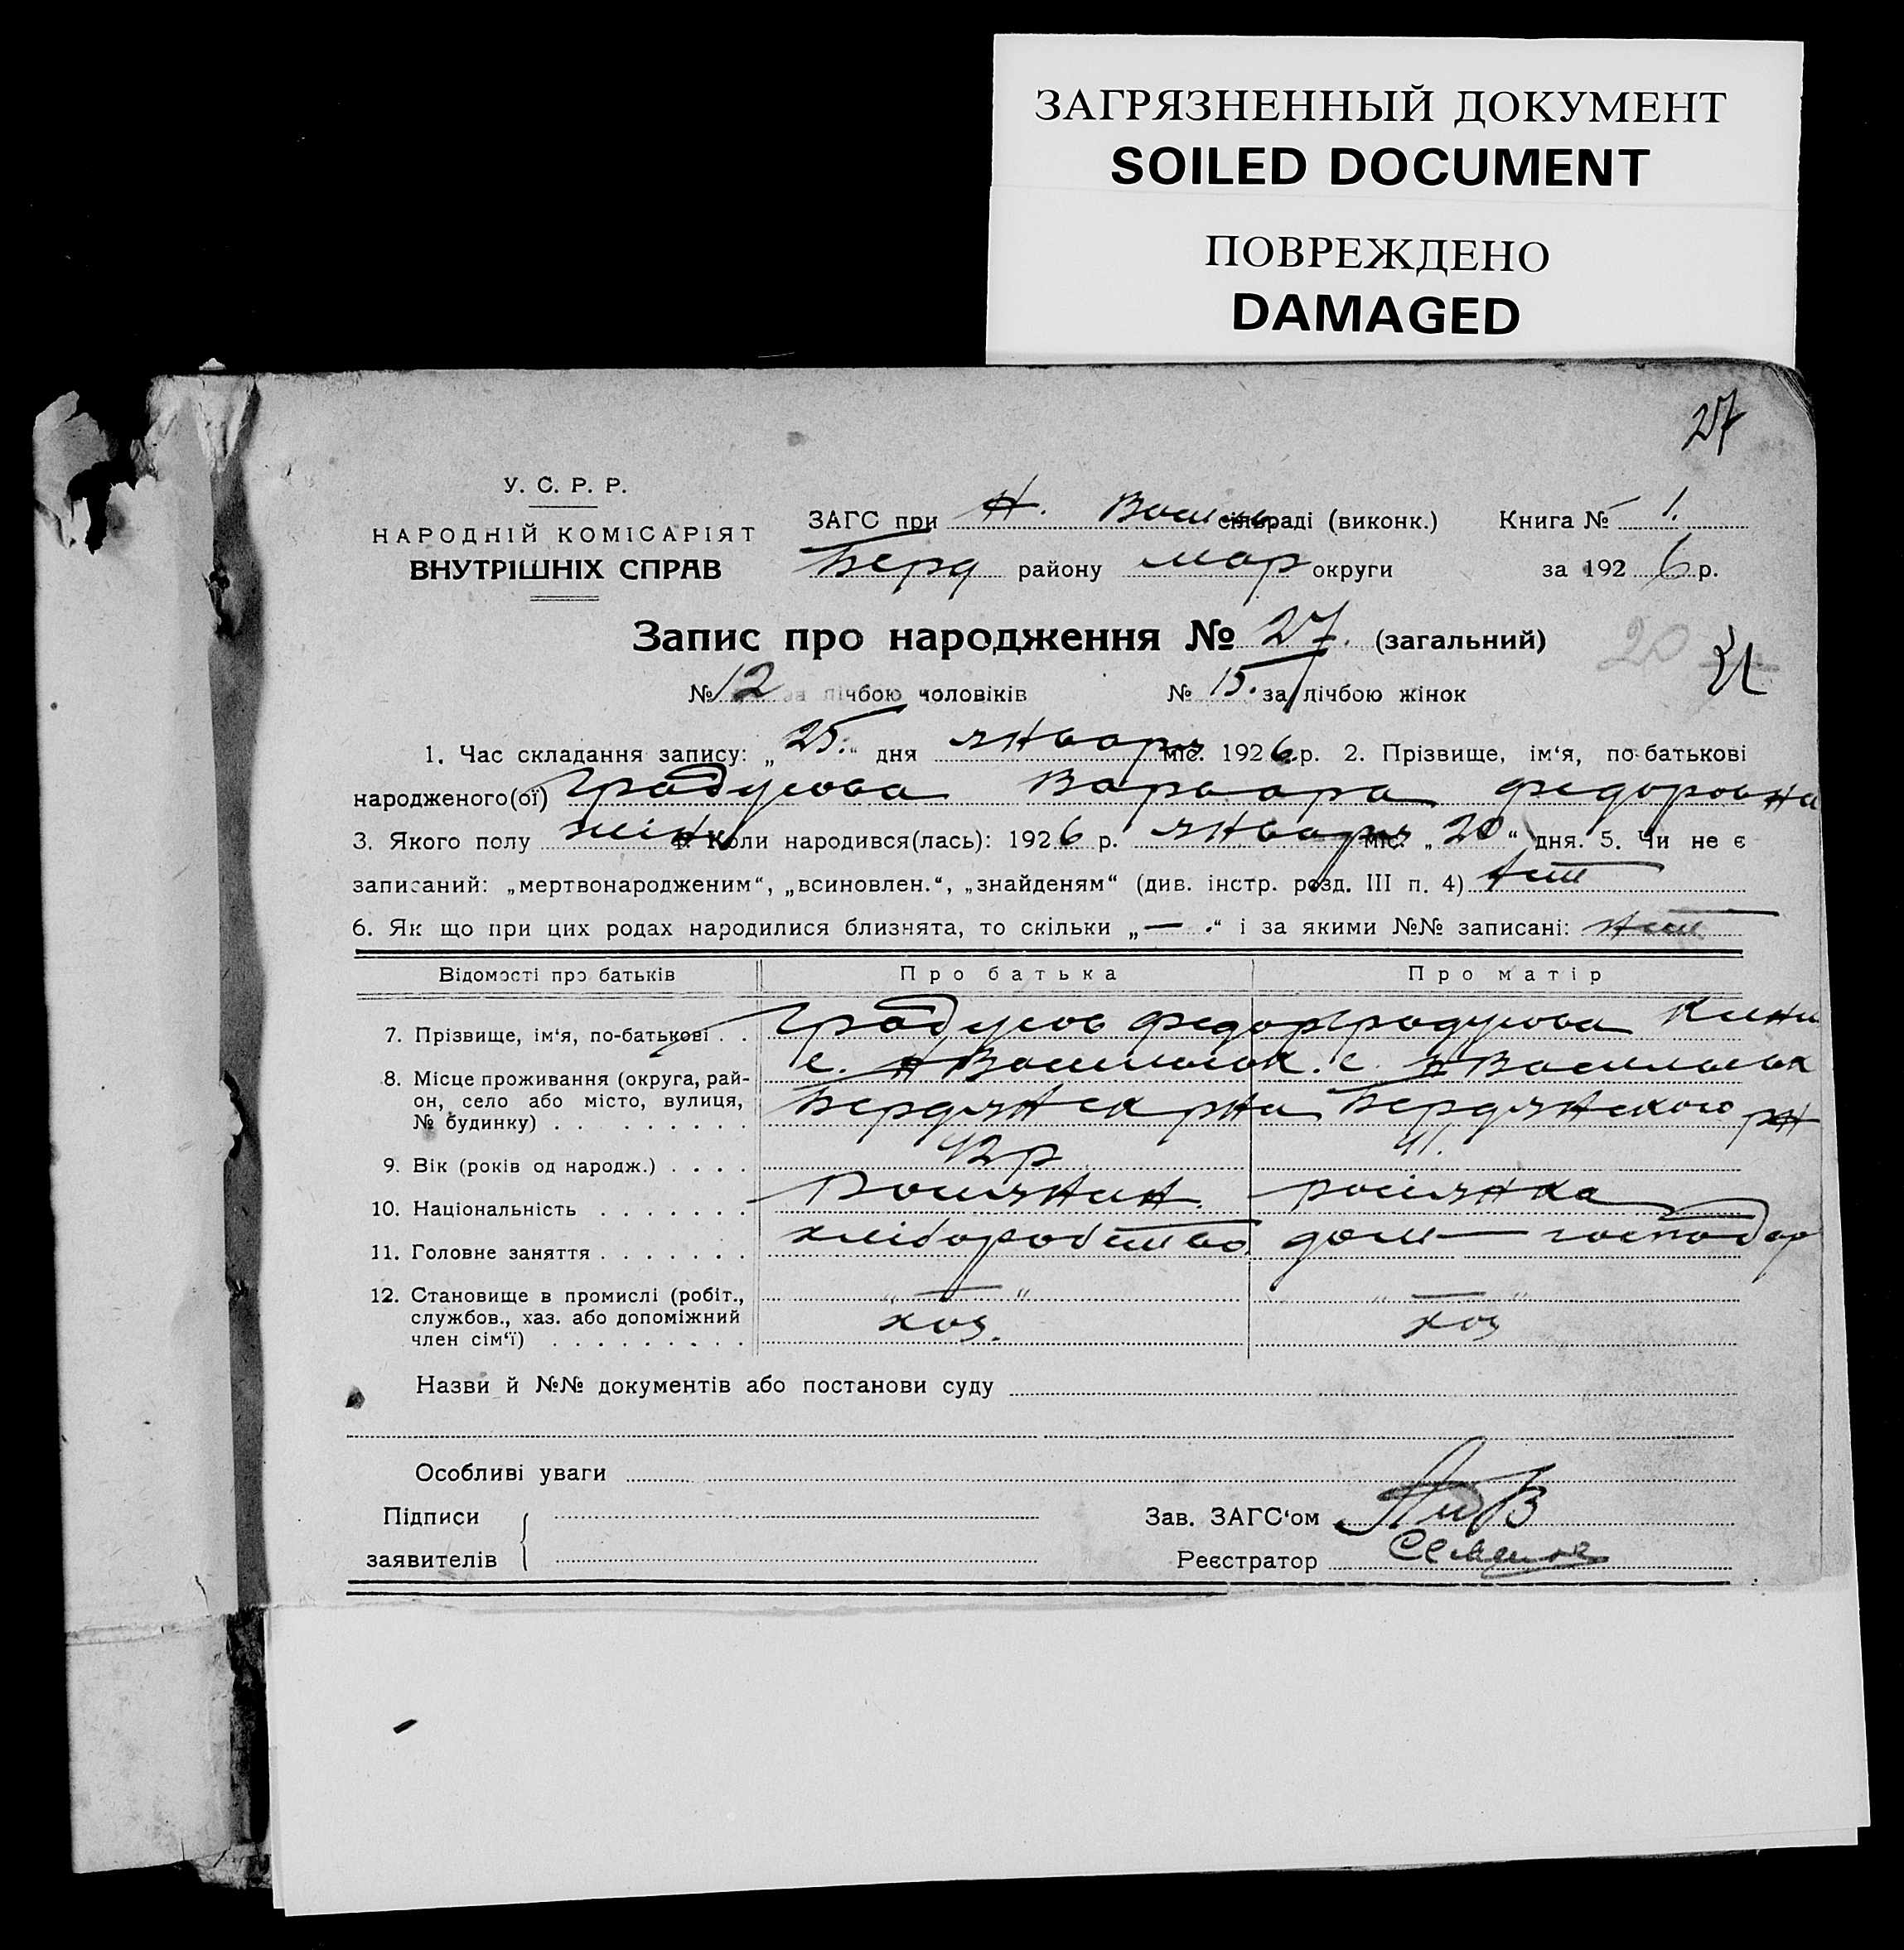 ЗАГРЯЗНЕННЫЙ ДОКУМЕНТ
SOILED DOCUMENT
ПОВРЕЖДЕНО
DAMAGED
27
У. С. Р. Р.
НАРОДНІЙ КОМІСАРІЯТ
ВНУТРІШНІХ СПРАВ
ЗАГС при Н. сільраді (виконк.) Книга № 1.
Берд району мар округи за 1926 р.
Запис про народження № 27. (загальний)
20
№ 12 за лічбою чоловіків № 15. за лічбою жінок
1. Час складання запису: „25.“ дня января міс. 1926 р. 2. Прізвище, ім‘я, по-батькові
народженого(ої) Градусова Варвара Федоровна
3. Якого полу жін 4. Коли народився(лась): 1926 р. января міс. „20“ дня. 5. Чи не є
записаний: „мертвонародженим“, „всиновлен.“, „знайденям“ (див. інстр. розд. III п. 4) нет
6. Як що при цих родах народилися близнята, то скільки „—.“ і за якими №№ записані: нет
Відомості про батьків Про батька Про матір
7. Прізвище, ім‘я, по-батькові . . Градусов Федор Градусова
8. Місце проживання (округа, рай- с. Н Васильевк. с. Н Васильевк
он, село або місто, вулиця, Бердянск рна Бердянского рн
№ будинку) . . . . . . . . . .
9. Вік (років од народж.) . . . . 42 р 41.
10. Національність . . . . . . . Росиянин. росіянка
11. Головне заняття . . . . . . . хліборобство дом — господар
12. Становище в промислі (робіт., „ — “ „ — “
службов., хаз. або допоміжний хоз. хоз
член сім‘ї) . . . . . . . . .
Назви й №№ документів або постанови суду
Особливі уваги
Підписи Зав. ЗАГС‘ом
заявителів Реєстратор